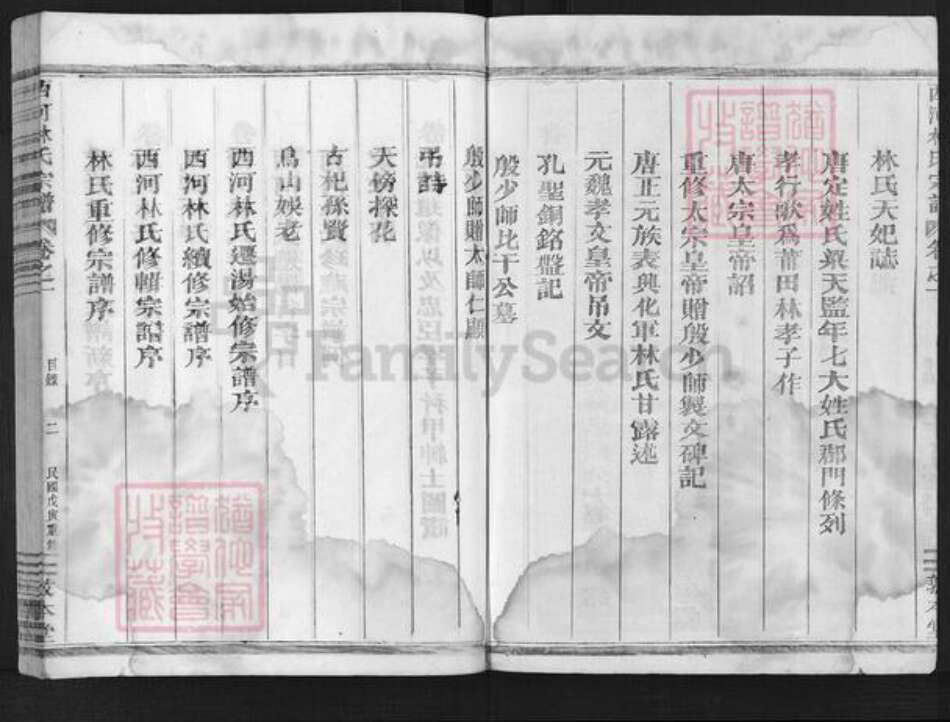 林氏天妃誌
唐定姓氏梁天監年七大姓氏郡門條列
孝行狀為莆田林孝子作
唐太宗皇帝詔
重修太宗皇帝贈殷少師製文碑記
唐正元族表興化軍林氏甘露述
元魏孝文皇帝吊文
孔聖銅銘盤記
殷少師比干公墓
殷少師贈太師仁顯
弔詩
天榜探花
古杞孫賢
烏山娛老
西河林氏遷湯始修宗譜序
西河林氏續修宗譜序
西河林氏修輯宗譜序
林氏重修宗譜序
西河林氏宗譜
卷之一
目錄
二
民國戊寅重修
敦本堂
FamilySearch